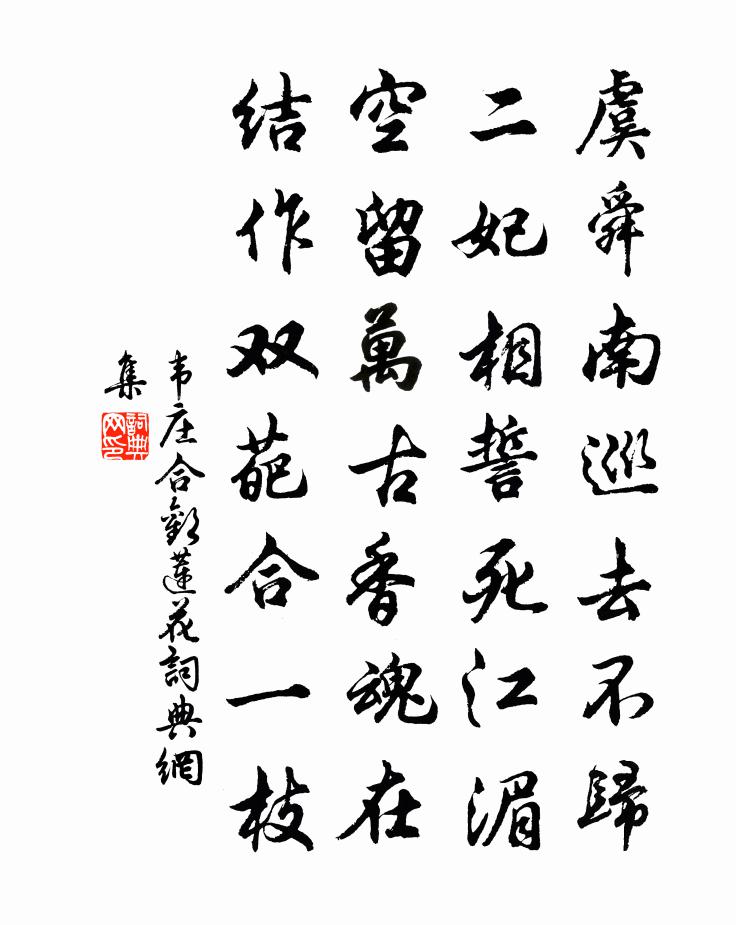 虞舜南巡去不歸
二妃相誓死江湄
空留萬古香魂在
结作双葩合一枝
韦庄合歡蓮花詞典網
集
詞典网印